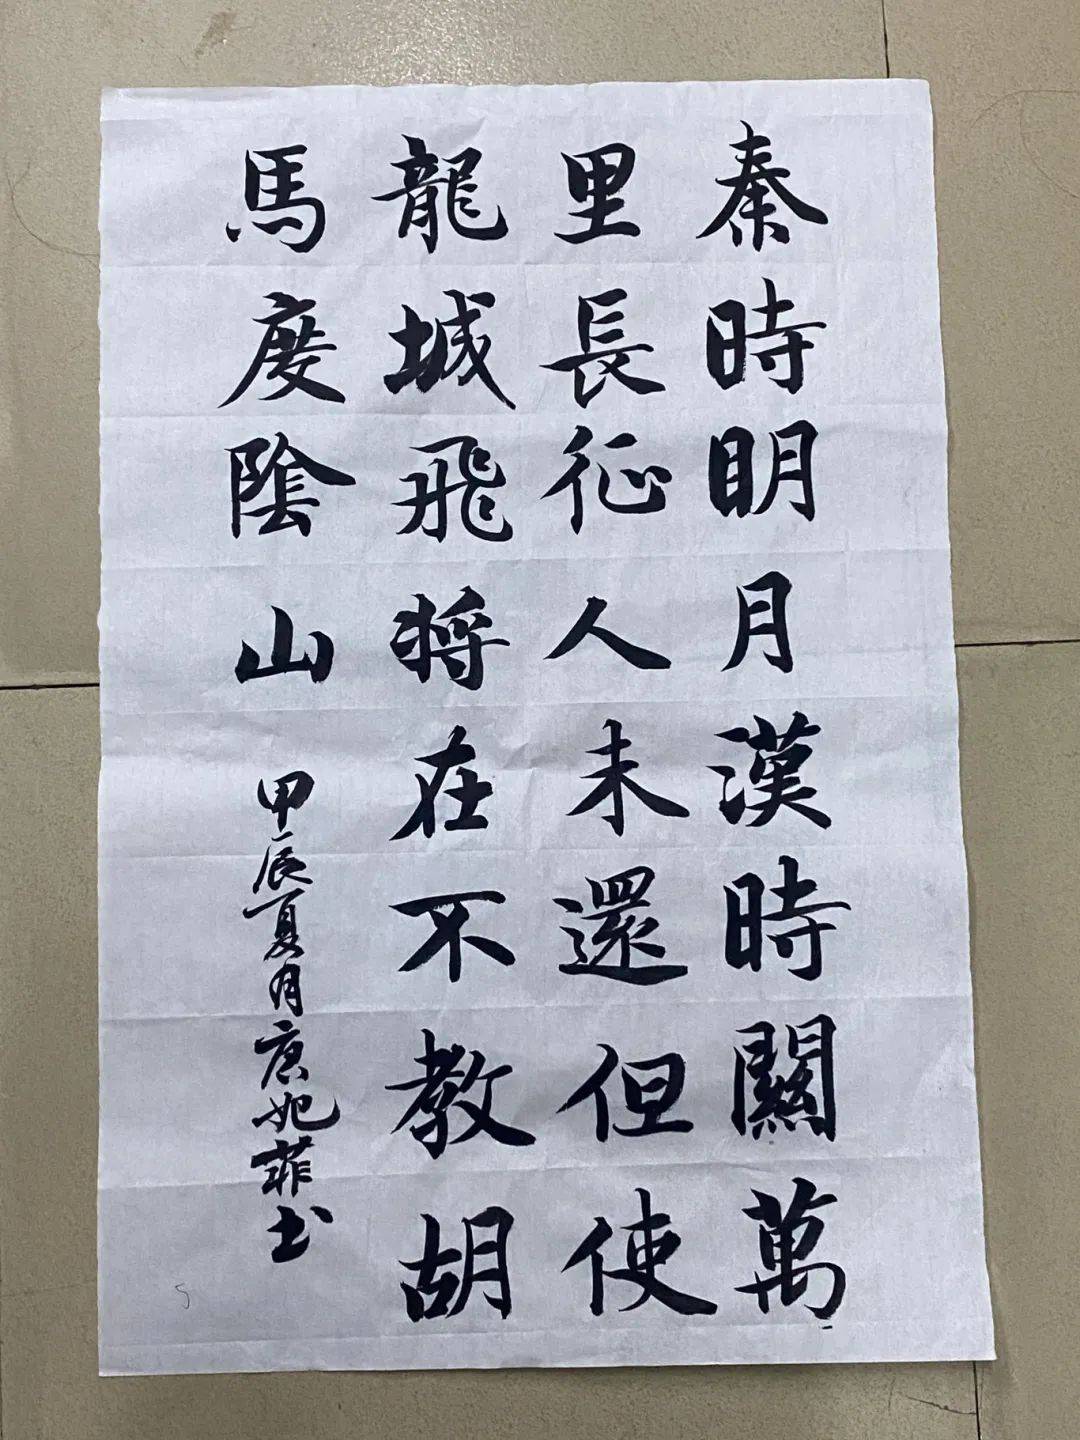 秦時明月漢時關萬
里長征人未還但使
龍城飛将在不教胡
馬度陰山
甲辰夏月唐妃菲书